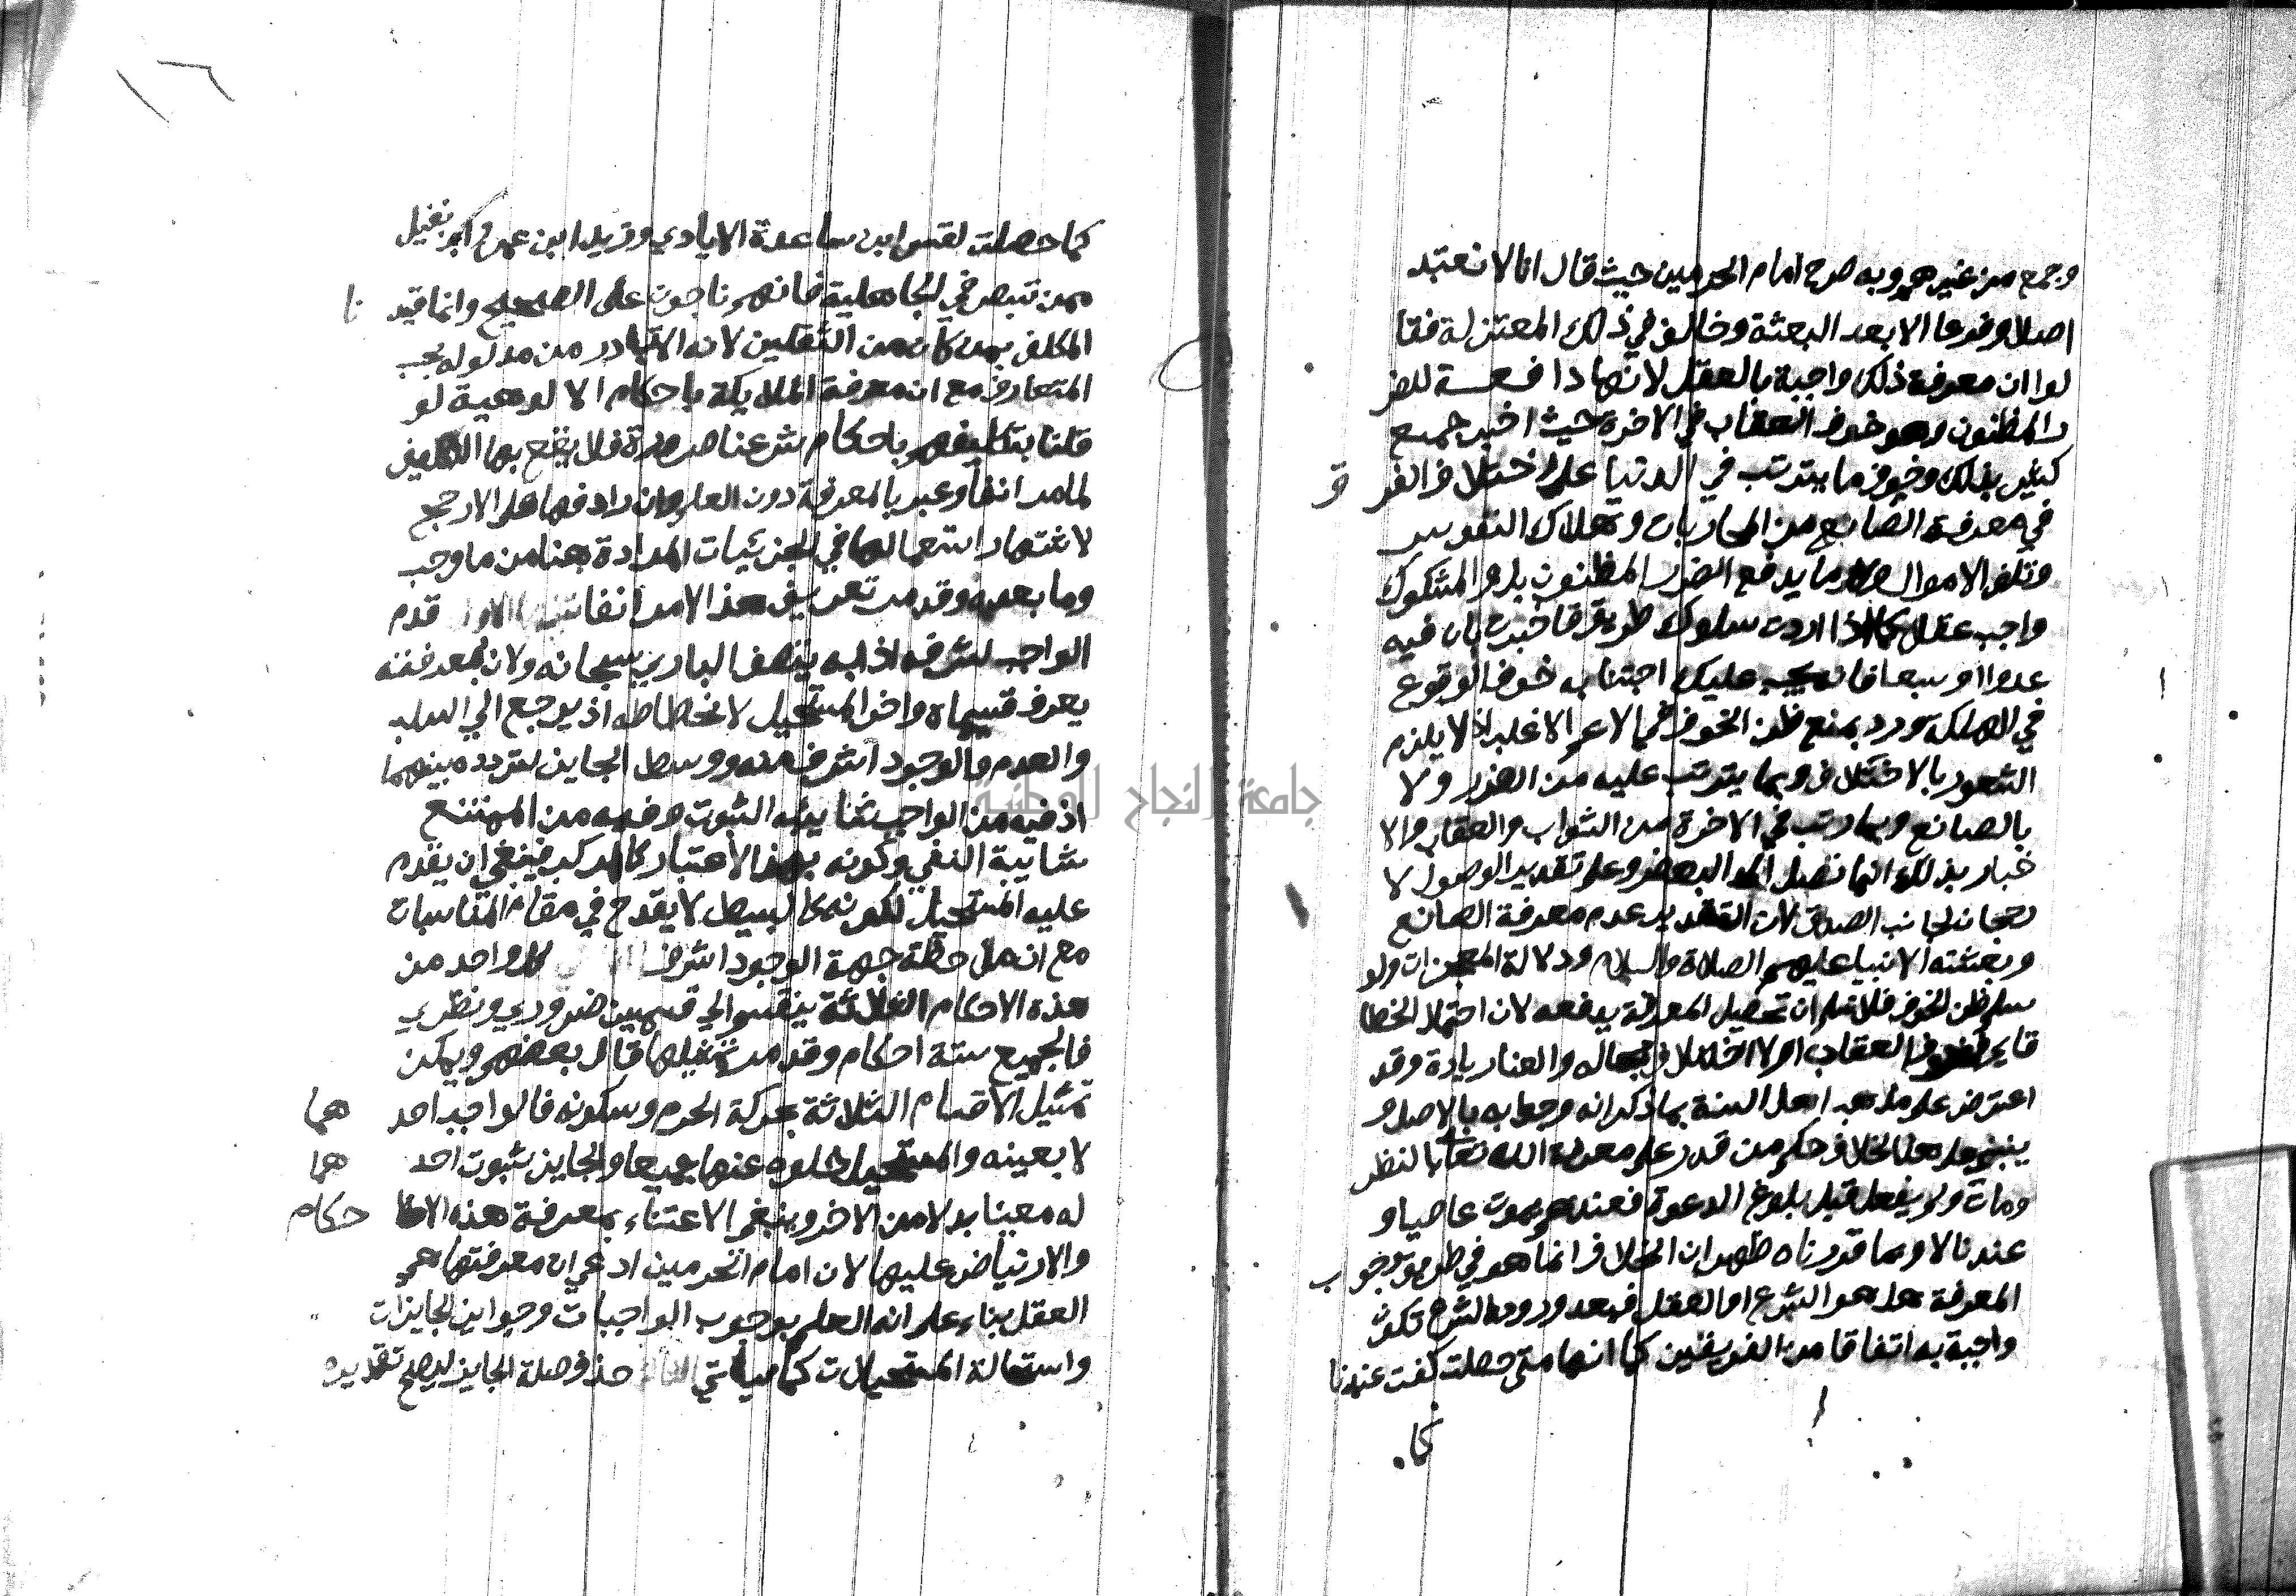 وجمع من غيرهم وبه صرح امام الحرمين حيث قال انا لا نعتبد
اصلا وفرعا الا بعد البعثة وخالف في ذلك المعتزلة فقا
لوا ان معرفة ذلك واجبة بالعقل لانها دافعة للضر
ر المظنون وهو خوف العقاب في الاخرة حيث اخبر جميع
كثير بذلك وخوف ما يترتب في الدنيا على اختلاف الفر ق
في معرفة الصانع من المحاربات وهلاك النفوس
وتلف الاموال وكل ما يدفع الضرر المظنون بل والمشكوك
واجب عقلا كما اذا اردت سلوك طريق فاخبرت بان فيه
عدوا او سبعا فانه يجب عليك اجتنابه خوف الوقوع
في الهلكة ورد بمنع ظن الخوف في الاعم الاغلب اذ لا يلزم
الشعور بالاختلاف وبما يترتب عليه من الضرر ولا
بالصانع وبما رتب في الاخرة من الثواب والعقاب والا
خبار بذلك انما تصل الى البعض وعلى تقدير الوصول لا
رجحان لجانب الصدق لان التقدير عدم معرفة الصانع
وبعثته الانبيا عليهم الصلاة والسلام ودلالة المعجزات ولو
سلم ظن الخوف فلا نسلم ان تحصيل المعرفة يدفعه لان احتمال الخطا
قايم فخوف العقاب او الاختلاف بحاله والعنا زيادة وقد
اعترض على مذهب اهل السنة بما ذكرانه وجوابه بالاصل و
ينبني على هذا الخلاف حكم من قدر على معرفة الله تعالى بالنظر
ومات ولم يفعل قبل بلوغ الدعوة فعندهم يموت عاصيا و
عندنا لا وبما قررناه ظهر ان الخلاف انما هو في طريق وجوب
المعرفة هل هو الشرع او العقل فبعد ورود الشرع تكون
واجبة به اتفاقا من الفريقين كما انها متى حصلت كفت عندنا
كما
١٦
كما حصلت لقس ابن ساعدة الايادي وزيد ابن عمرو ابن نفيل
ممن تبصر في الجاهلية فانهم ناجون على الصحيح وانما قيد نا
المكلف بمن كان من الثقلين لانه المتبادر من مدلوله بحسب
المتعارف مع ان معرفة الملايكة باحكام الالوهية لو
قلنا بتكليفهم باحكام شرعنا ضرورة فلا يقع بها التكليف
لما مر انفا وعبر بالمعرفة دون العلم وان رادفها على الارجح
لاشتهار استعمالها في الجزئيات المرادة هنا من ما وجب
وما بعده وقد مر تعريف هذا الامر انفا قدم
الواجب لشرفه اذ به يتصف الباري سبحانه ولان بمعرفته
يعرف قسيماه واخر المستحيل لانحطاطه اذ يرجع الي السلب
والعدم والوجود اشرف منه ووسط الجايز لتردده بينهما
اذ فيه من الواجب شايبة الثبوت وفيه من الممتنع
شايبة النفي وكونه بهذا الاعتبار كالمركب فينبغي ان يقدم
عليه المستحيل لكونه كالبسيط لا يقدح في مقام المناسبات
مع ان ملاحظة جهة الوجود اشرف كل واحد من
هذه الاحكام الثلاثة ينقسم الي قسمين ضروري ونظري
فالجميع ستة احكام وقد مر تمثيلها قال بعضهم ويمكن
تمثيل الاقسام الثلاثة بحركة الجرم وسكونه فالواجب احد هما
لا بعينه والمستحيل خلوه عنهما جميعا والجايز ثبوت احد هما
له معينا بدلا من الاخر وينبغي الاعتناء بمعرفة هذه الاحكا حكام
والارتياض عليها لان امام الحرمين ادعي ان معرفتها هي
العقل بناء على انه العلم بوجوب الواجبات وجواز الجايزات
واستحالة المستحيلات كما سياتي حذف صلة الجايز ليصلح تقديره
جامعة النجاح الوطنية